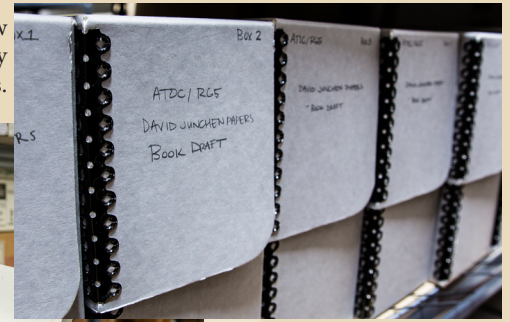 w
y
s.
Box 1
RS
Box 2
ATDC / RG5
DAVID JUNCHEN PAPERS
BOOK DRAFT
ATDC/RG5
DAVID JUNCHEN PAPERS
BOOK DRAFT